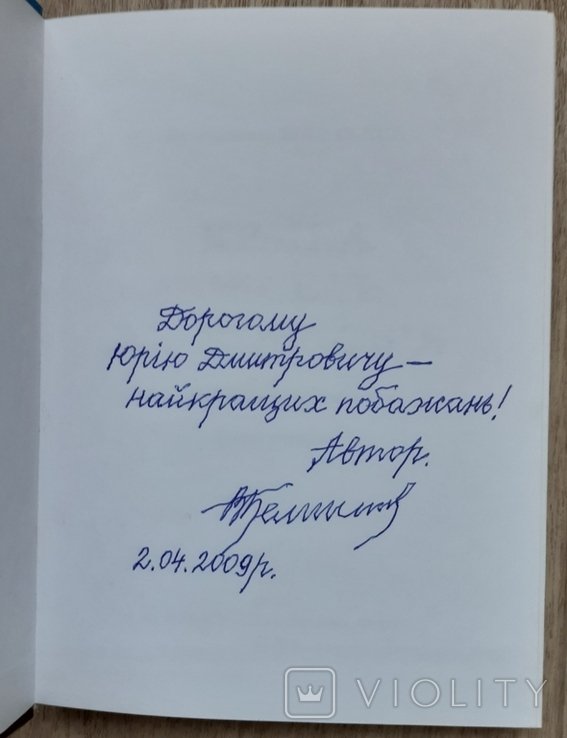 Дорогому
Юрію Дмитровичу —
найкращих побажань!
Автор.
2.04.2009р.
VIOLITY